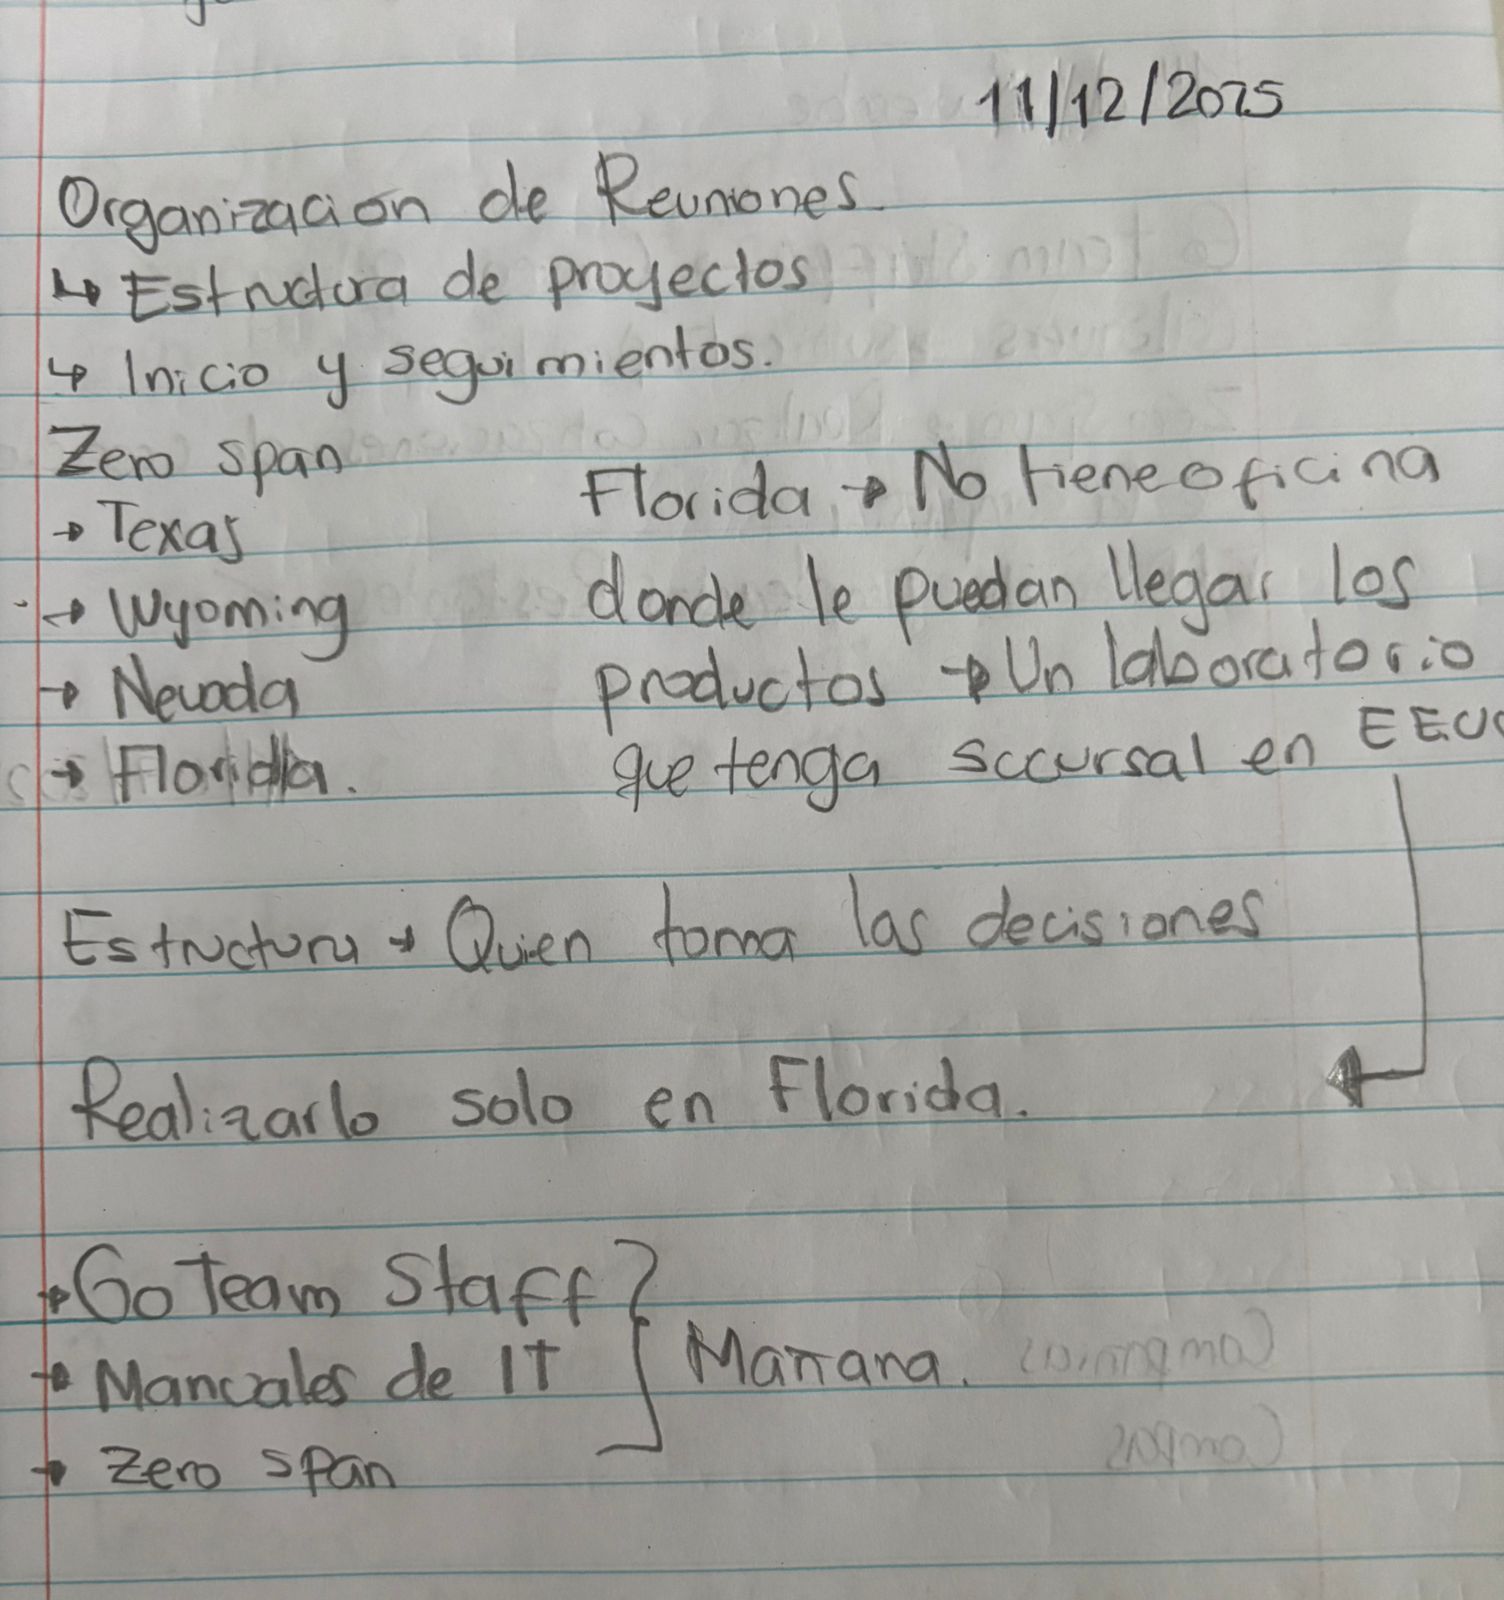 11/12/2025
Organizacion de Reuniones.
↳ Estructura de proyectos
↳ Inicio y seguimientos.
Zero span
→ Texas
→ Wyoming
→ Nevada
→ Florida.
Florida → No tiene oficina
donde le puedan llegar los
productos → Un laboratorio
que tenga sucursal en EEUU
Estructura → Quien toma las decisiones
Realizarlo solo en Florida.
→ Go Team Staff
→ Manuales de IT
→ Zero span
Mañana.